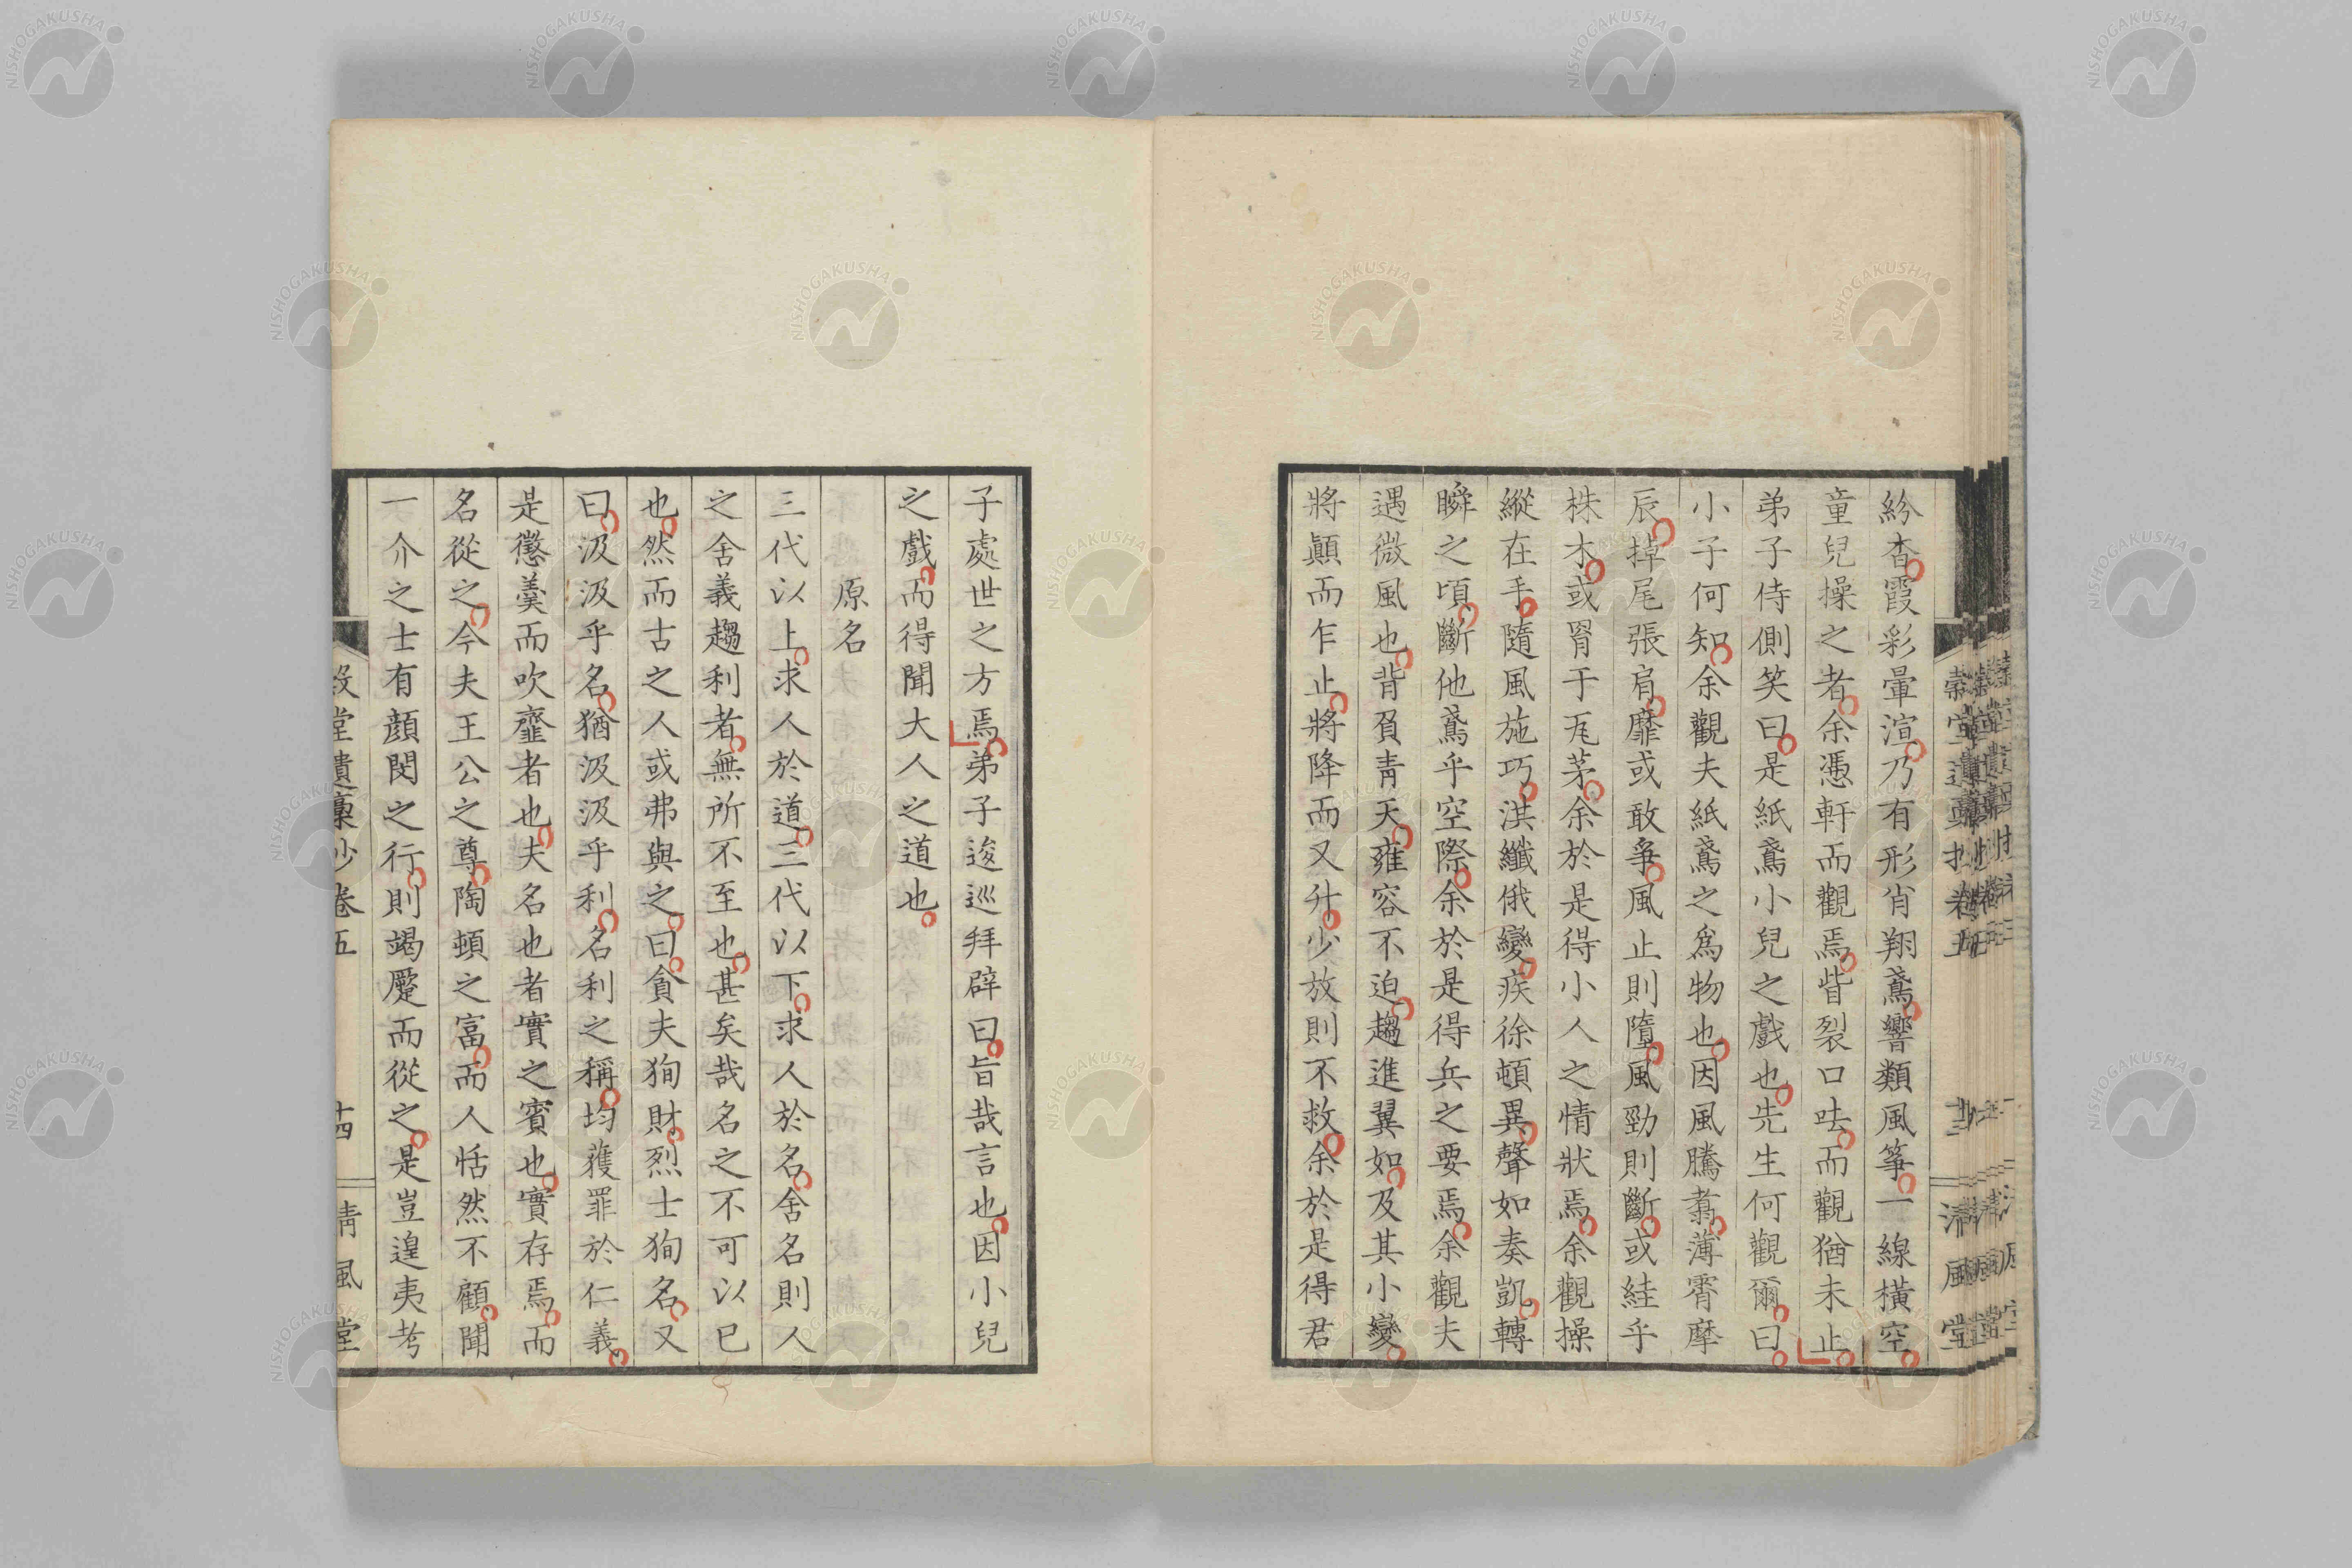 紛杳霞彩暈渲乃有形肖翔鳶響類風箏一線橫空
童兒操之者余憑軒而觀焉眥裂口呿而觀猶未止
弟子侍側笑曰是紙鳶小兒之戲也先生何觀爾曰
小子何知余觀夫紙鳶之爲物也因風騰翥薄霄摩
辰掉尾張肩靡或敢爭風止則墮風勁則斷或絓乎
株木或罥于瓦茅余於是得小人之情狀焉余觀操
縱在手隨風施巧洪纖俄變疾徐頓異聲如奏凱轉
瞬之頃斷他鳶乎空際余於是得兵之要焉余觀夫
遇微風也背負靑天雍容不迫趨進翼如及其小變
將顚而乍止將降而又升少放則不救余於是得君
子處世之方焉弟子逡巡拜辟曰旨哉言也因小兒
之戲而得聞大人之道也
原名
三代以上求人於道三代以下求人於名舍名則人
之舍義趨利者無所不至也甚矣哉名之不可以已
也然而古之人或弗與之曰貪夫狥財烈士狥名又
曰汲汲乎名猶汲汲乎利名利之稱均獲罪於仁義
是懲羹而吹齏者也夫名也者實之賓也實存焉而
名從之今夫王公之尊陶頓之富而人恬然不顧聞
一介之士有顔閔之行則竭蹷而從之是豈遑夷考
堂遺稾抄卷五
十四
淸風堂
NISHOGAKUSHA